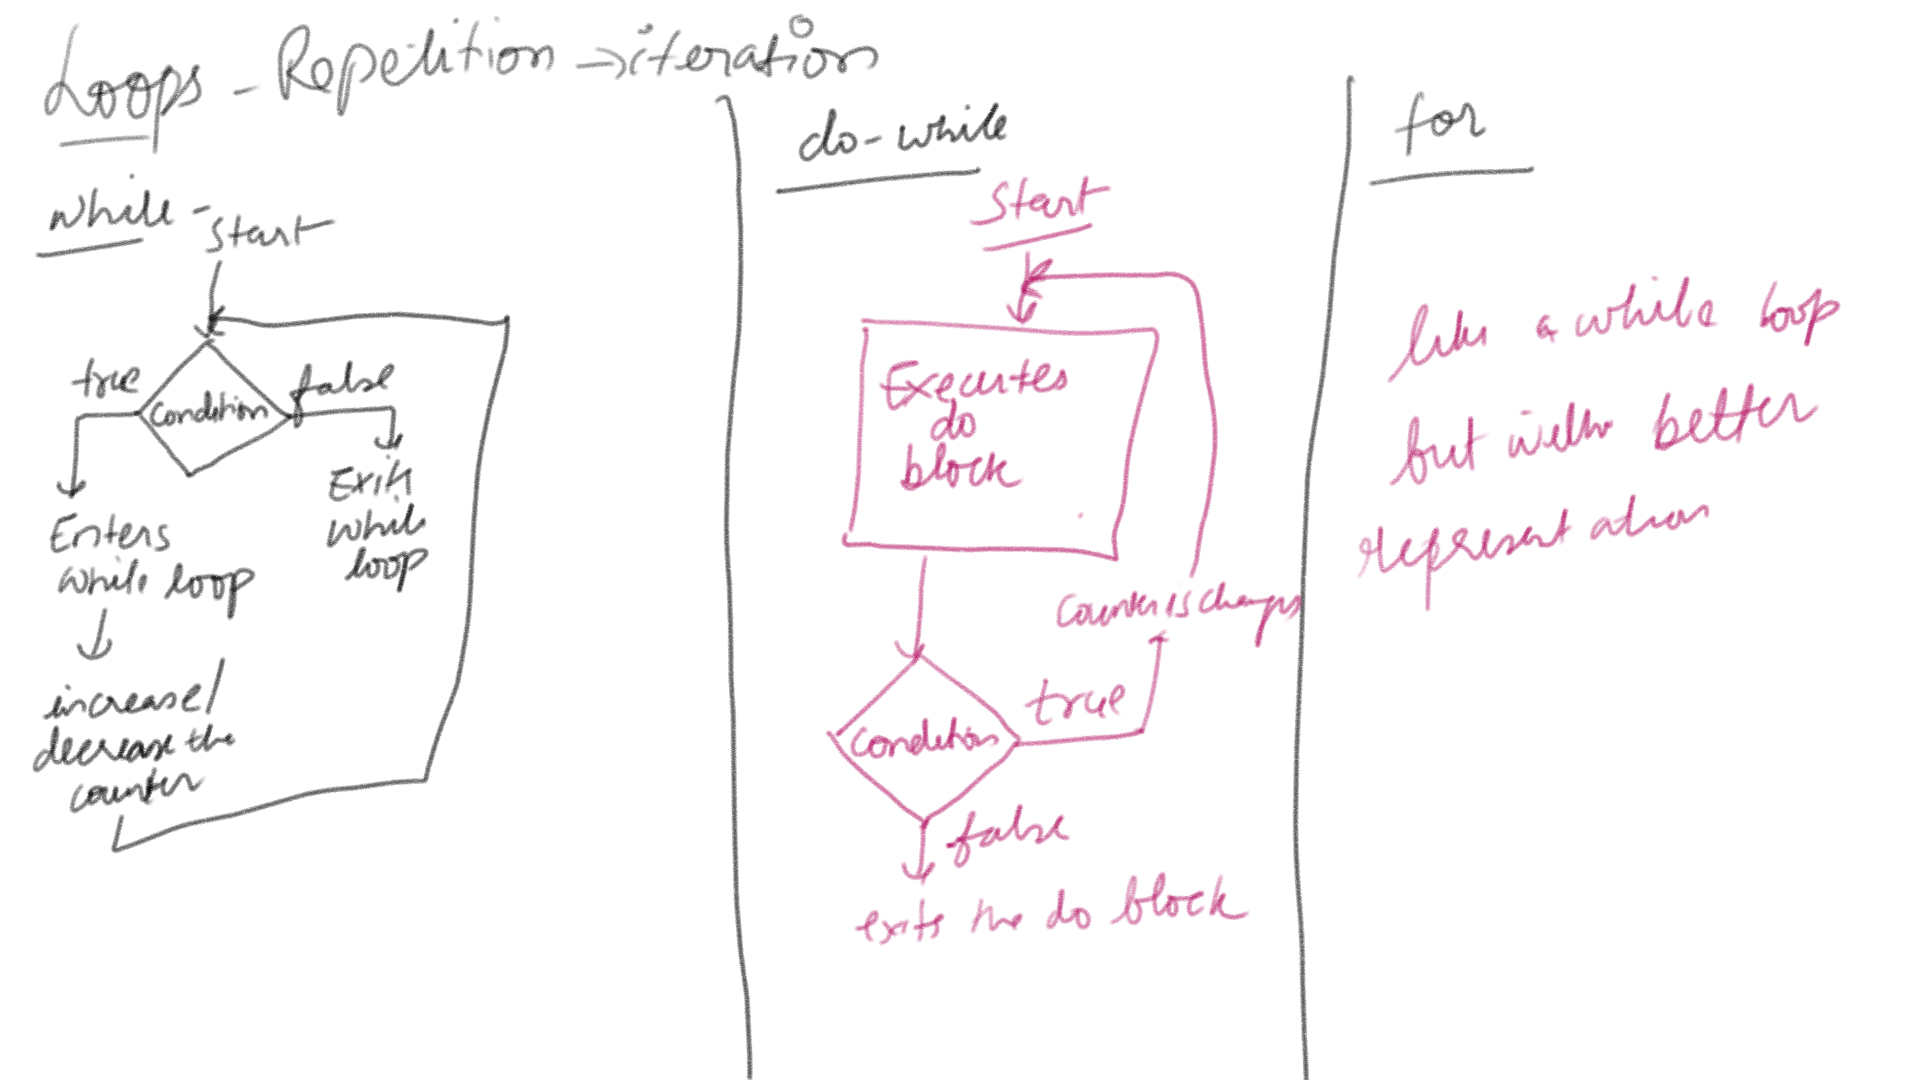 Loops - Repetition → iteration
while -
Start
true
false
Condition
Exit
while
loop
Enters
while loop
increase/
decrease the
counter
do-while
Start
Executes
do
block
Counter is changes
true
Condition
false
exits the do block
for
like a while loop
but with better
representation